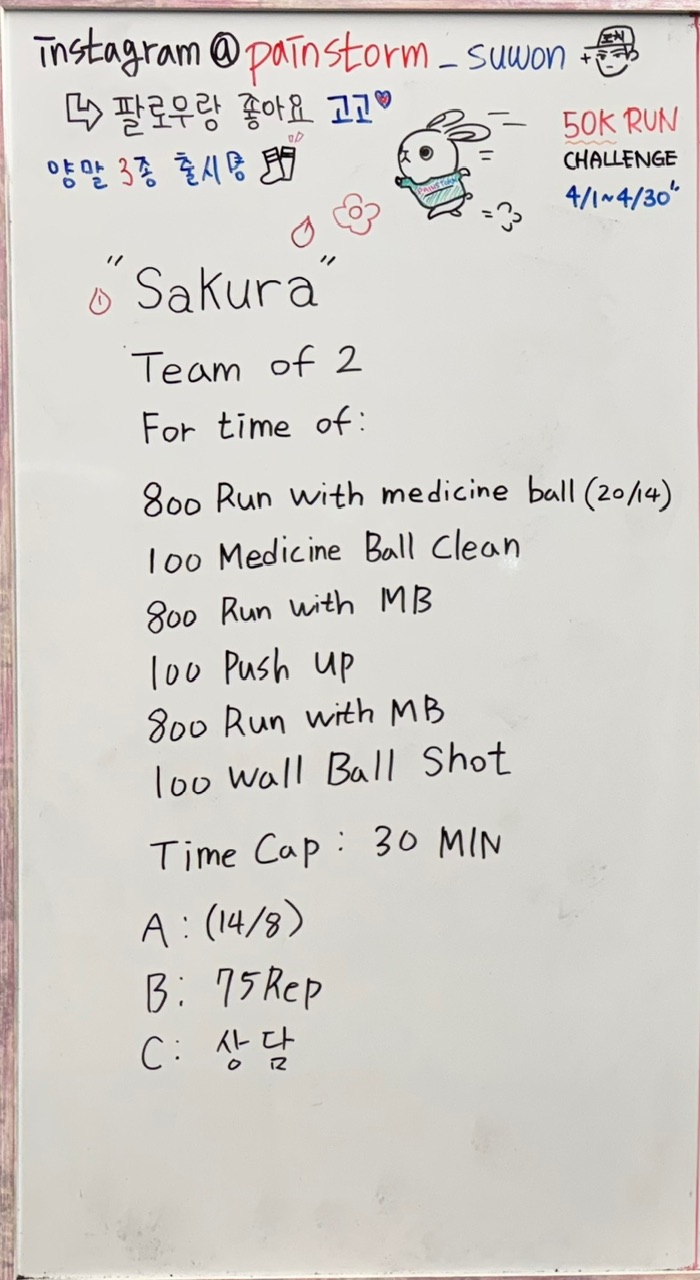 instagram @painstorm_suwon
팔로우랑 좋아요 고고
양말 3종 출시
PAINSTORM
50K RUN
CHALLENGE
4/1~4/30"
"Sakura"
Team of 2
For time of:
800 Run with medicine ball (20/14)
100 Medicine Ball Clean
800 Run with MB
100 Push up
800 Run with MB
100 Wall Ball Shot
Time Cap : 30 MIN
A : (14/8)
B : 75Rep
C : 상담